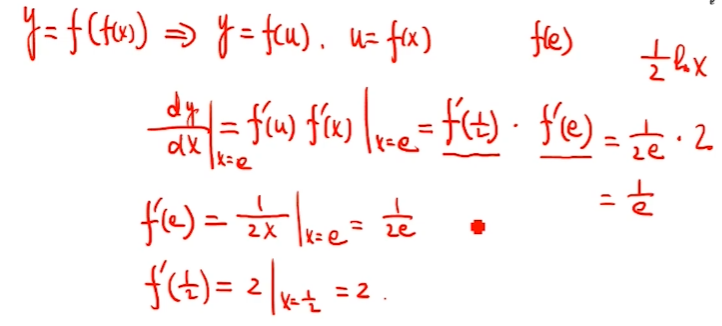 y = f(f(x)) ⇒ y = f(u), u = f(x)    f(e)    1/2 ln x
dy/dx|x=e = f'(u) f'(x)|x=e = f'(1/2) · f'(e) = 1/2e · 2
= 1/e
f'(e) = 1/2x|x=e = 1/2e
f'(1/2) = 2|x=1/2 = 2.